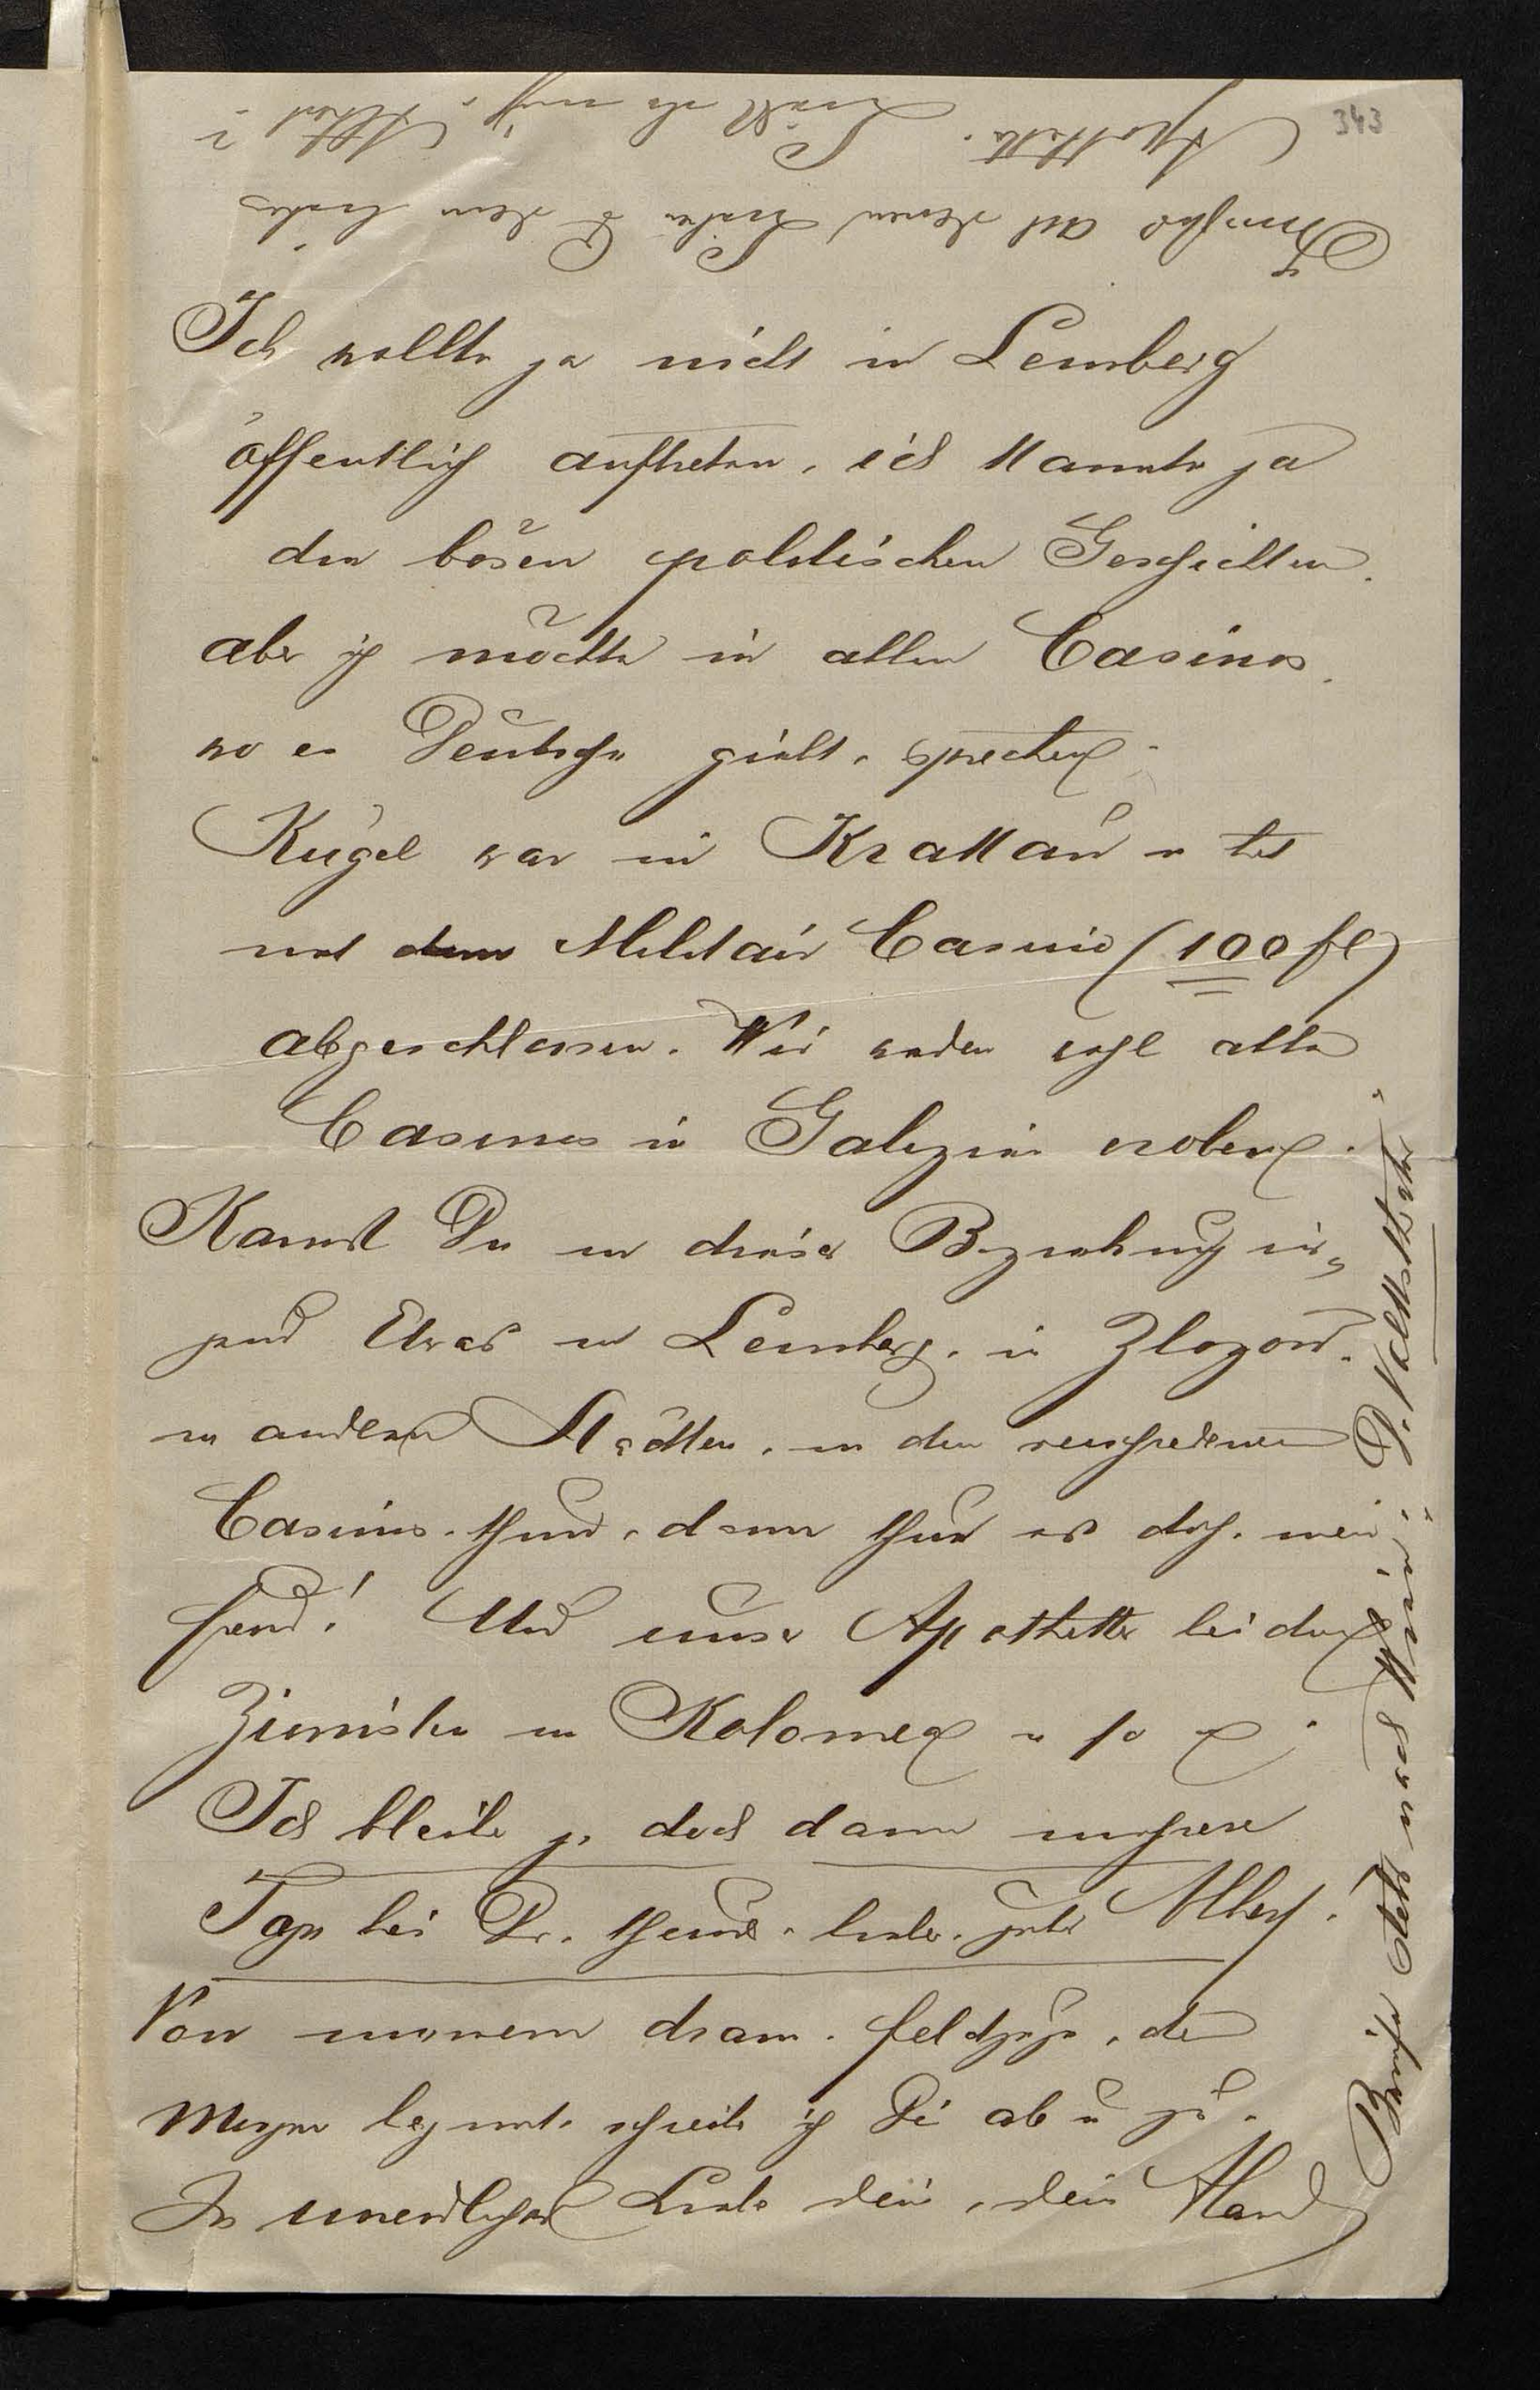 343
Ich wollte ja nicht in Lemberg
öffentlich auftreten, ich kannte ja
die bösen politischen Geschichten.
aber ich möchte in allen Casinos,
wo es Deutsche giebt, sprechen.
Kugel war in Krakau u hat
mit dem Militair Casino (100 fl)
abgeschlossen. Wir werden wohl alle
Casinos in Galizien erobern.
Kannst Du in dieser Beziehung ir-
gend Etwas in Lemberg, in Zloczow,
in anderen Städten, in den verschiedenen
Casinos thun, dann thue es doch, mein
Freund! Und unser Apotheker bei den
in Kolomea u so
Ich bleibe ja doch dann mehrere
Tage bei Dir, theurer, lieber, guter Albert!
Von meinem dram. Feldzuge, der
Morgen beginnt, schreibe ich Dir ab u zu.
In unendlicher Liebe dein, dein
steht noch
Grüße all deine Lieben
Apotheker.